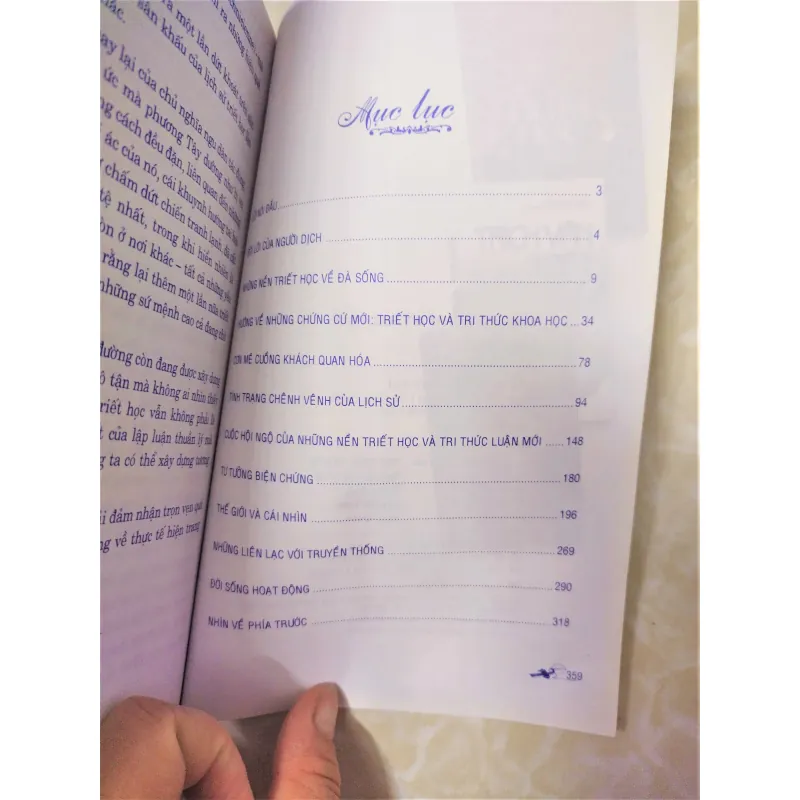 ra một lần dứt khoát
sân khấu của lịch sử triết học
ác.
ay lại của chủ nghĩa ngu dân
ức mà phương Tây dường như
ng cách đều đặn, liên quan đến
ác của nó, cái khuynh hướng
chấm dứt chiến tranh lạnh, đã
tệ nhất, trong khi hiển nhiên
òn ở nơi khác – tất cả những
rằng lại thêm một lần nữa triết
những sứ mệnh cao cả đang chờ
đường còn đang được xây dựng
ô tận mà không ai nhìn thấy
riết học vẫn không phải là
t của lập luận thuần lý mà
ng ta có thể xây dựng tương
i đảm nhận trọn vẹn quá
ng về thực tế hiện trang
Mục lục
NÓI ĐẦU 3
LỜI CỦA NGƯỜI DỊCH 4
NHỮNG NỀN TRIẾT HỌC VỀ ĐÀ SỐNG 9
HƯỚNG VỀ NHỮNG CHỨNG CỨ MỚI: TRIẾT HỌC VÀ TRI THỨC KHOA HỌC ... 34
CƠN MÊ CUỒNG KHÁCH QUAN HÓA 78
TÌNH TRẠNG CHÊNH VÊNH CỦA LỊCH SỬ 94
CUỘC HỘI NGỘ CỦA NHỮNG NỀN TRIẾT HỌC VÀ TRI THỨC LUẬN MỚI 148
TƯ TƯỞNG BIỆN CHỨNG 180
THẾ GIỚI VÀ CÁI NHÌN 196
NHỮNG LIÊN LẠC VỚI TRUYỀN THỐNG 269
ĐỜI SỐNG HOẠT ĐỘNG 290
NHÌN VỀ PHÍA TRƯỚC 318
359